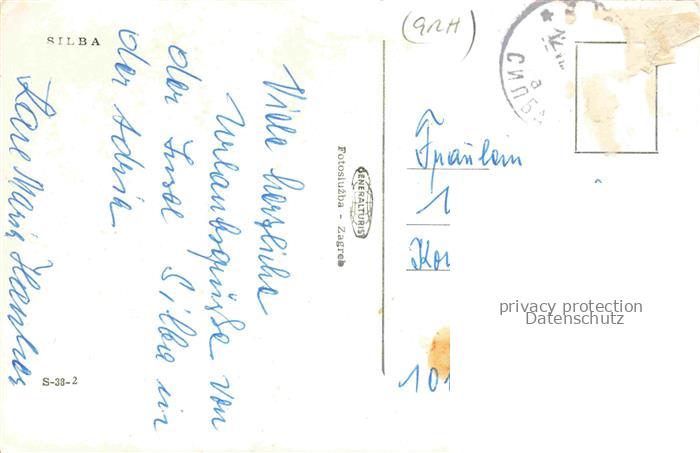 SILBA
Viele herzliche
Urlaubsgrüße von
der Insel Silba in
der Adria.
Eure Maria
S-38-2
GENERALTURIST
Fotoslužba - Zagreb
(9RH)
СИЛБА
a
Fräulein
1
Ko
101
privacy protection
Datenschutz